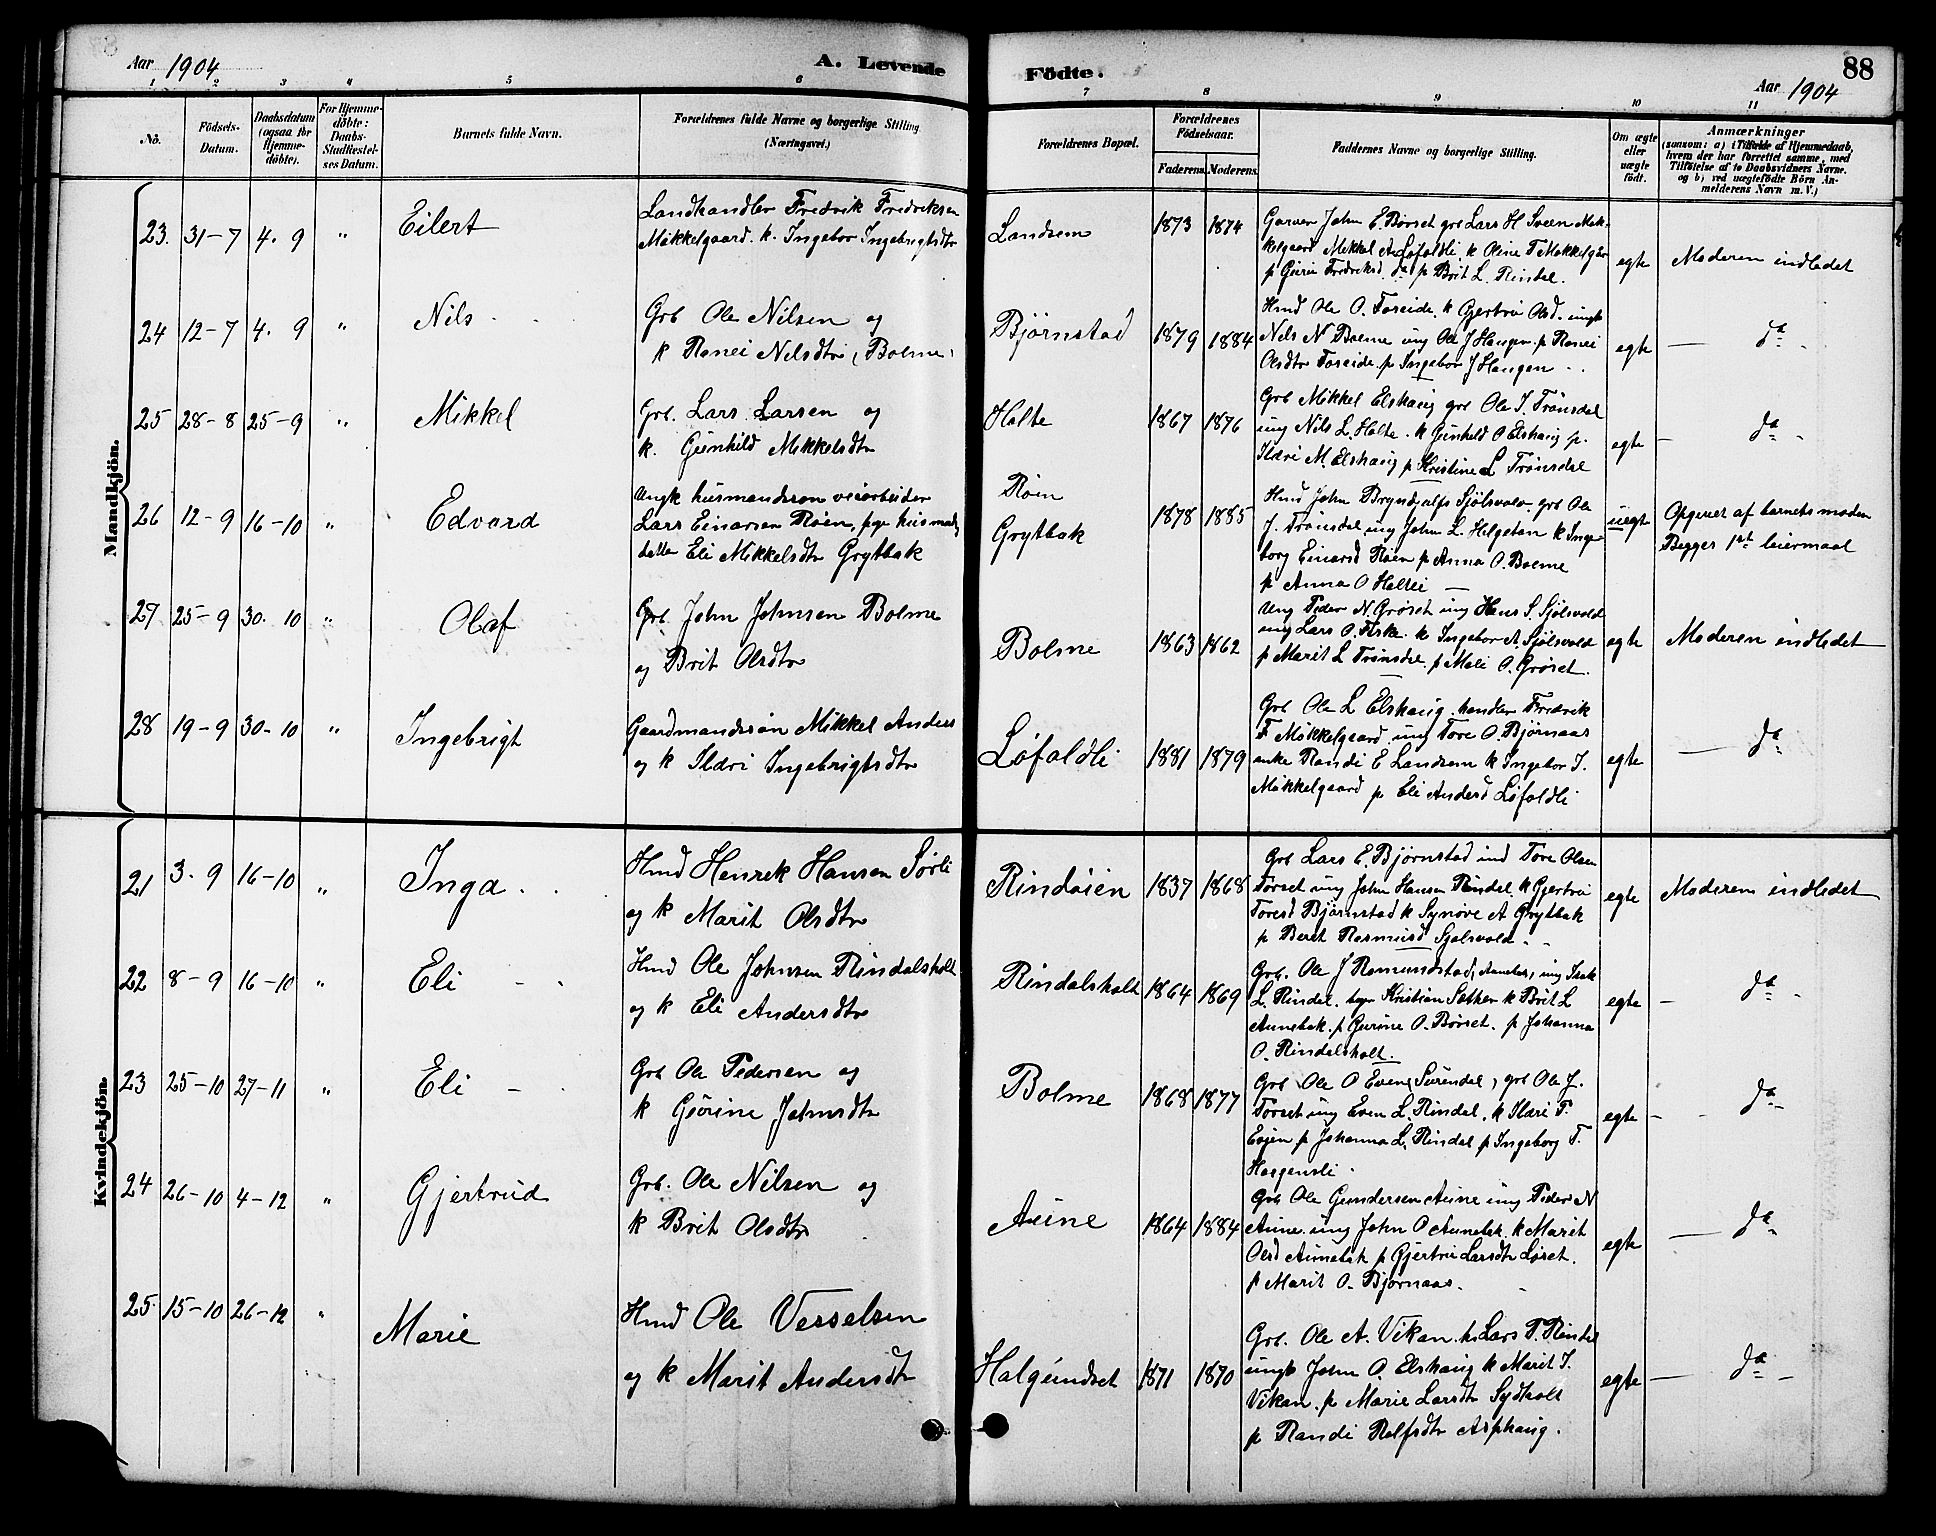 Aar 1904
A. Levende
Födte.
88
Aar 1904
1 2 3 4 5 6 7 8 9 10 11
No.
Födsels-
Datum.
Daabsdatum
(ogsaa for
Hjemme-
döbte).
For Hjemme-
döbte:
Daabs-
Stadfæstel-
ses Datum.
Barnets fulde Navn.
Forældrenes fulde Navne og borgerlige Stilling
(Næringsvei.)
Forældrenes Bopæl.
Forældrenes
Födselsaar.
Faderens.
Moderens.
Faddernes Navne og borgerlige Stilling.
Om ægte
eller
uægte
födt.
Anmærkninger
(saasom: a) i Tilfælde af Hjemmedaab,
hvem der har forrettet samme, med
Tilföielse af to Daabsvidners Navne.
og b) ved uægtefödte Börn An-
melderens Navn m. V.)
Mandkjön.
23. 31-7 4. 9 " Eilert
Landhandler Fredrik Fredriksen
Mókkelgaard. k. Ingebor Ingebrigtsdtr
Landsem 1873 1874
Garver John E. Børset grb Lars H Sveen Møk-
kelgaard Mikkel A Løfaldli. k Oline F Møkkelgår
p Guru Fredriksd. do p Brit L. Rindal.
egte Moderen indledet
24 12-7 4. 9 " Nils
Grb Ole Nilsen og
k Ranei Nilsdtr (Bolme)
Bjørnstad 1879 1884
Hmd Ole O. Foreide. k Gjertru Olsd. ungk
Nils N Bolme ung Ole J Haugen. p Ranei
Olsdtr Foreide. p Ingebor J Haugen
egte — da
25 28-8 25-9 " Mikkel
Grb. Lars Larsen og
k. Gunhild Mikkelsdtr
Holte 1867 1876
Grb Mikkel Elshaug grb Ole I. Trønsdal
ung Nils L. Holte. k Gunhild O Elshaug p.
Ildri M. Elshaug p Kristine L Trønsdal
egte — da
26 12-9 16-10 " Edvard
Ungk husmandssøn veiarbeider
Lars Einarsen Røen, pge husmds
datter Eli Mikkelsdtr Grytbak
Røen
Grytbak 1878 1885
Hmd John Bryndjulfs Sjølsvold. grb Ole
J. Trønsdal ung John L. Helgetun k Inge-
borg Einarsd Røen p Anna O. Bolme
p Anna O Haltli
uegte Opgivet af barnets moder
Begges 1ste leiermaal
27 25-9 30. 10 " Olaf
Grb. John Johnsen Bolme
og Brit Olsdtr
Bolme 1863 1862
Ung Peder N. Grøset ung Hans S. Sjølsvold
ung Lars O. Fiske. k Ingebor A. Sjølsvold
p Marit L Trønsdal. p Mali O. Grøset.
egte Moderen indledet
28 19-9 30-10 " Ingebrigt
Gaardmandssøn Mikkel Anders
og k Ildri Ingebrigtsdtr
Løfaldli 1881 1879
Grb Ole L Elshaug. handler Fredrik
F Møkkelgaard. ung Tore O. Bjørnaas
enke Randi E Landsem k Ingebor I.
Møkkelgaard p Eli Andersd Løfaldli
egte — da
Kvindekjön.
21 3. 9 16-10 " Inga
Hmd Henrik Hansen Sørli
og k Marit Olsdtr
Rindøien 1837 1868
Grb Lars E. Bjørnstad ind Tore Olsen
Torset ung John Hansen Rindal k Gjertru
Toresd Bjørnstad k Synøve A Grytbak
p Beret Rasmusd Sjølsvold.
egte Moderen indledet
22 8-9 16-10 " Eli
Hmd Ole Johnsen Rindalsholt
og k Eli Andersdtr
Rindalsholt 1864 1869
Grb. Ole J Romundstad, Aunebak, ung Isak
L. Rindal. Kristian Sæther k Brit L
Aunebak. p Gurine O. Børset. p Johanna
O. Rindalsholt.
egte — da
23 25-10 27-11 " Eli
Grb Ole Pedersen og
k Gjørine Johnsdtr
Bolme 1868 1877
Grb Ole O Even (Surendal) grb Ole J.
Torset ung Even L. Rindal. k Ildri T.
p Johanna L. Rindal p Ingeborg T.
egte — da
24 26-10 4-12 " Gjertrud
Grb. Ole Nilsen og
k Brit Olsdtr
Aune 1864 1884
Grb Ole Gundersen Aune ung Peder N
Aune. ung John O Aunebak. k Marit
Olsd Aunebak p Gjertru Larsdtr Løset.
p Marit O. Bjørnaas.
egte — da
25. 15-10 26-12 " Marie
Hmd Ole Vesselsen
og k Marit Andersdtr
Halgundset 1871 1870
Grb. Ole A. Vikan. Lars T. Rindal
ungk John O. Elshaug k Marit I.
Vikan. p Marie Larsdtr Sydholt
p Randi Rolfsdtr Asphaug.
egte — da